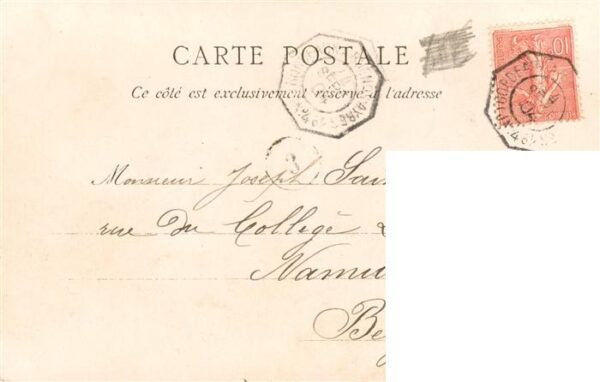 CARTE POSTALE
Ce côté est exclusivement réservé à l'adresse
10
3
Monsieur Joseph
rue du Collège
Namu
Be